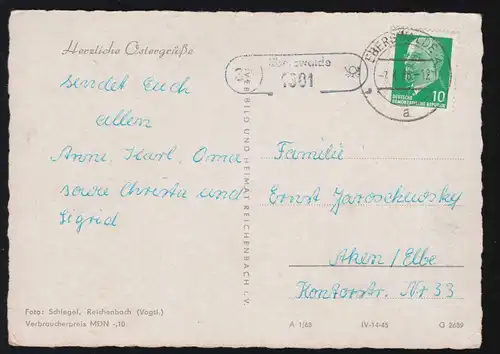 Herzliche Ostergrüße
sendet Euch
allen
Anni, Karl, Oma
sowie Christa und
Sigrid
Foto: Schlegel, Reichenbach (Vogtl.)
Verbraucherpreis MDN -,10
VEB BILD UND HEIMAT REICHENBACH i. V.
Eberswalde
1301
EBERSWALDE
a
10
DEUTSCHE
DEMOKRATISCHE REPUBLIK
Familie
Ernst Jaroschewsky
Aken/Elbe
Kantorstr. Nr 33
A 1/65 IV-14-45 G 2689